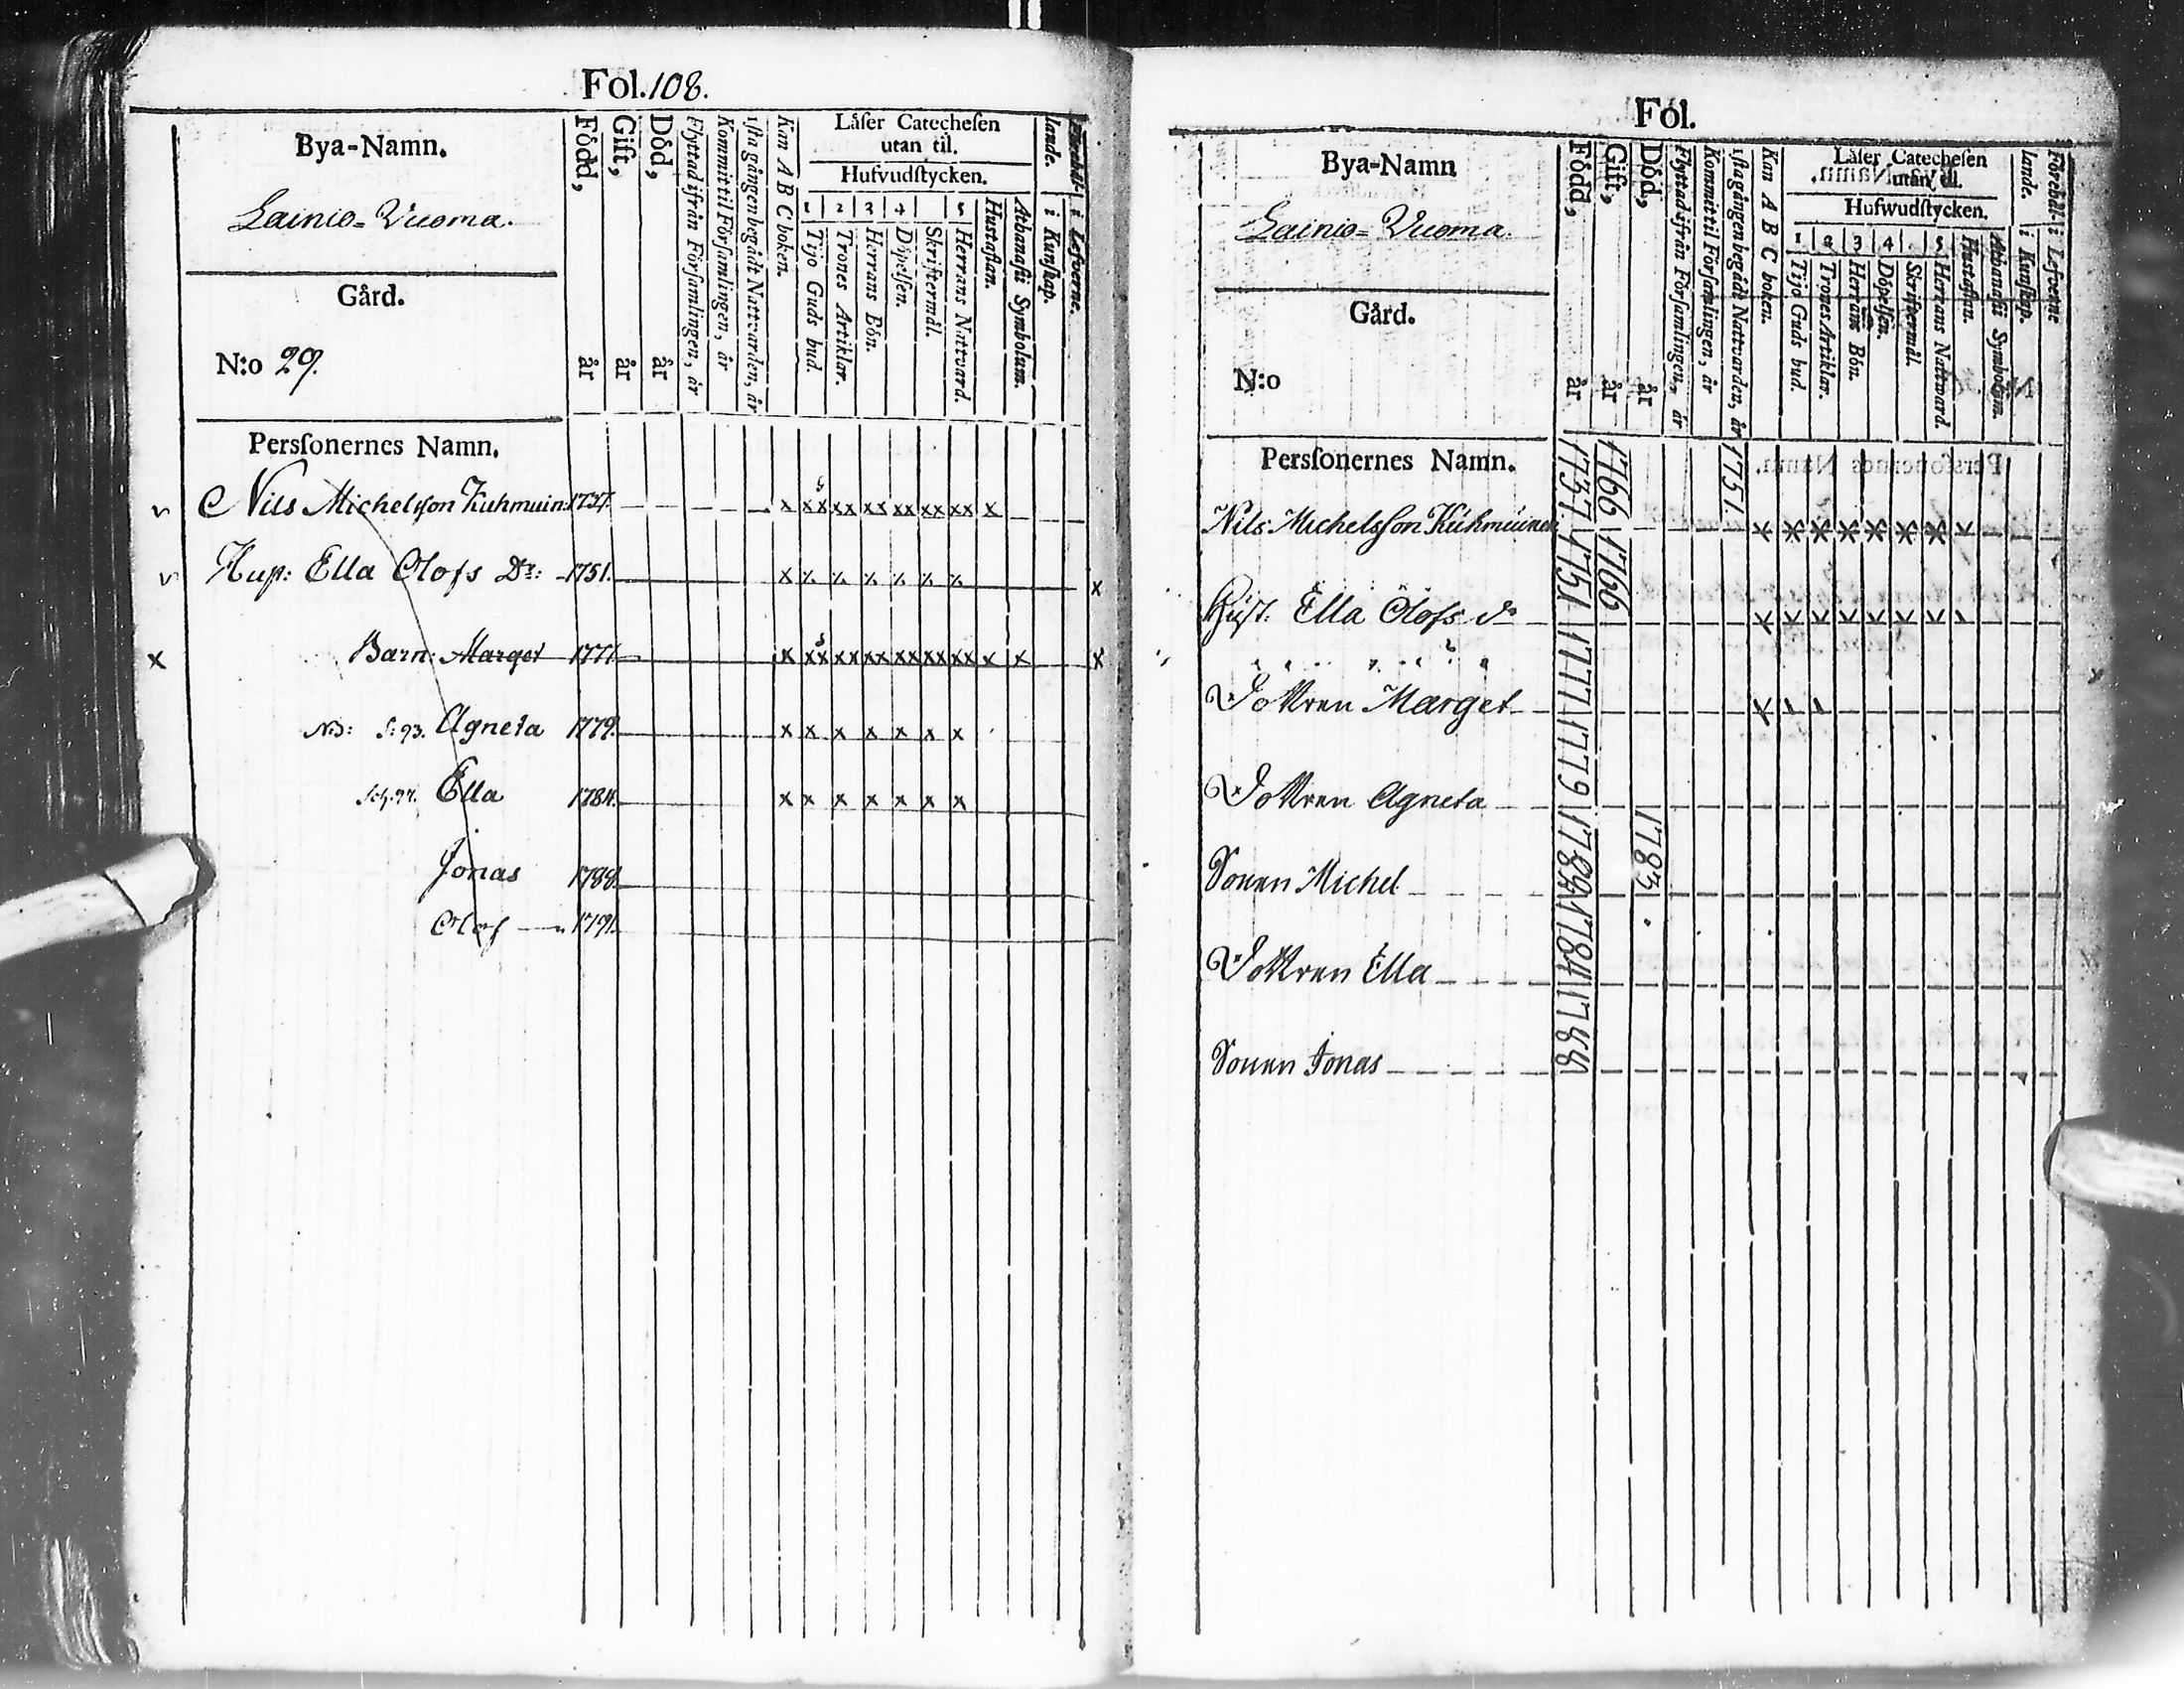 Fol. 108.
Bya-Namn.
Lainio=Vuoma.
Gård.
N:o 29.
Född, år
Gift, år
Död, år
Flyttad ifrån Församlingen, år
Kommit til Församlingen, år
1sta gången begådt Nattvarden, år
Kan A B C boken.
Låser Catechesen
utan til.
Hufvudstycken.
1 2 3 4 5
Tijo Guds bud.
Trones Artiklar.
Herrans Bön.
Döpelsen.
Skriftermål.
Herrans Nattvard.
Hustaflan.
Athanasii Symbolum.
Förehål-lande.
i Kunskap.
i Lefverne.
Perssonernes Namn.
v Nils Michelsson Kuhmuin: 1737. x xx xx xx xx xx xx x
v Hus: Ella Olofs Dr: 1751. x x
x Barn: Marget 1777 x xx xx xx xx xx xx x x x
NB: S: 93. Agneta 1779. x x x x x x x
Ella 1784. x x x x x x x
Jonas 1788.
Olof 1791.
Fol.
Bya-Namn
Lainio=Vuoma.
Gård.
N:o
Född, år
Gift, år
Död, år
Flyttad ifrån Församlingen, år
Kommit til Församlingen, år
1sta gången begådt Nattvarden, år
Kan A B C boken.
Låser Catechesen
utan til.
Hufwudstycken.
1 2 3 4 5
Tijo Guds bud.
Trones Artiklar.
Herrans Bön.
Döpelsen.
Skriftermål.
Herrans Nattvard.
Hustaflan.
Athanasii Symbolum.
Förehål-lande.
i Kunskap.
i Lefverne
Perssonernes Namn.
Nils Michelsson Kuhmuinen 1737 1766 1751.
Hust. Ella Olofs dr 1751 1766
Dottren Marget 1777
Dottren Agneta 1779
Sonen Michel 1783.
Dottren Ella 1784
Sonen Jonas 1788